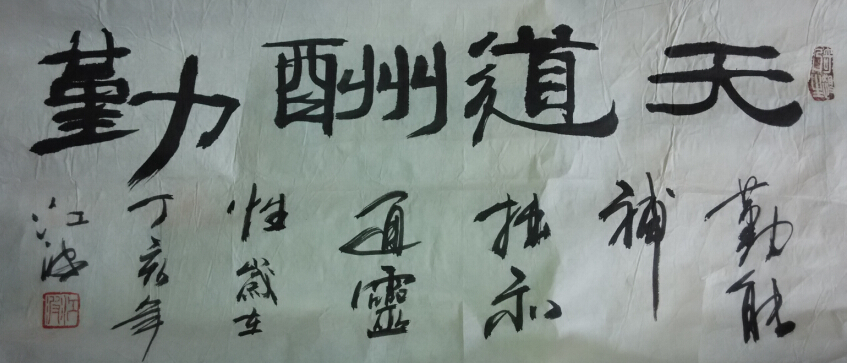 天道酬勤
勤能
補
拙和
通靈
性歲在
丁亥年
江波